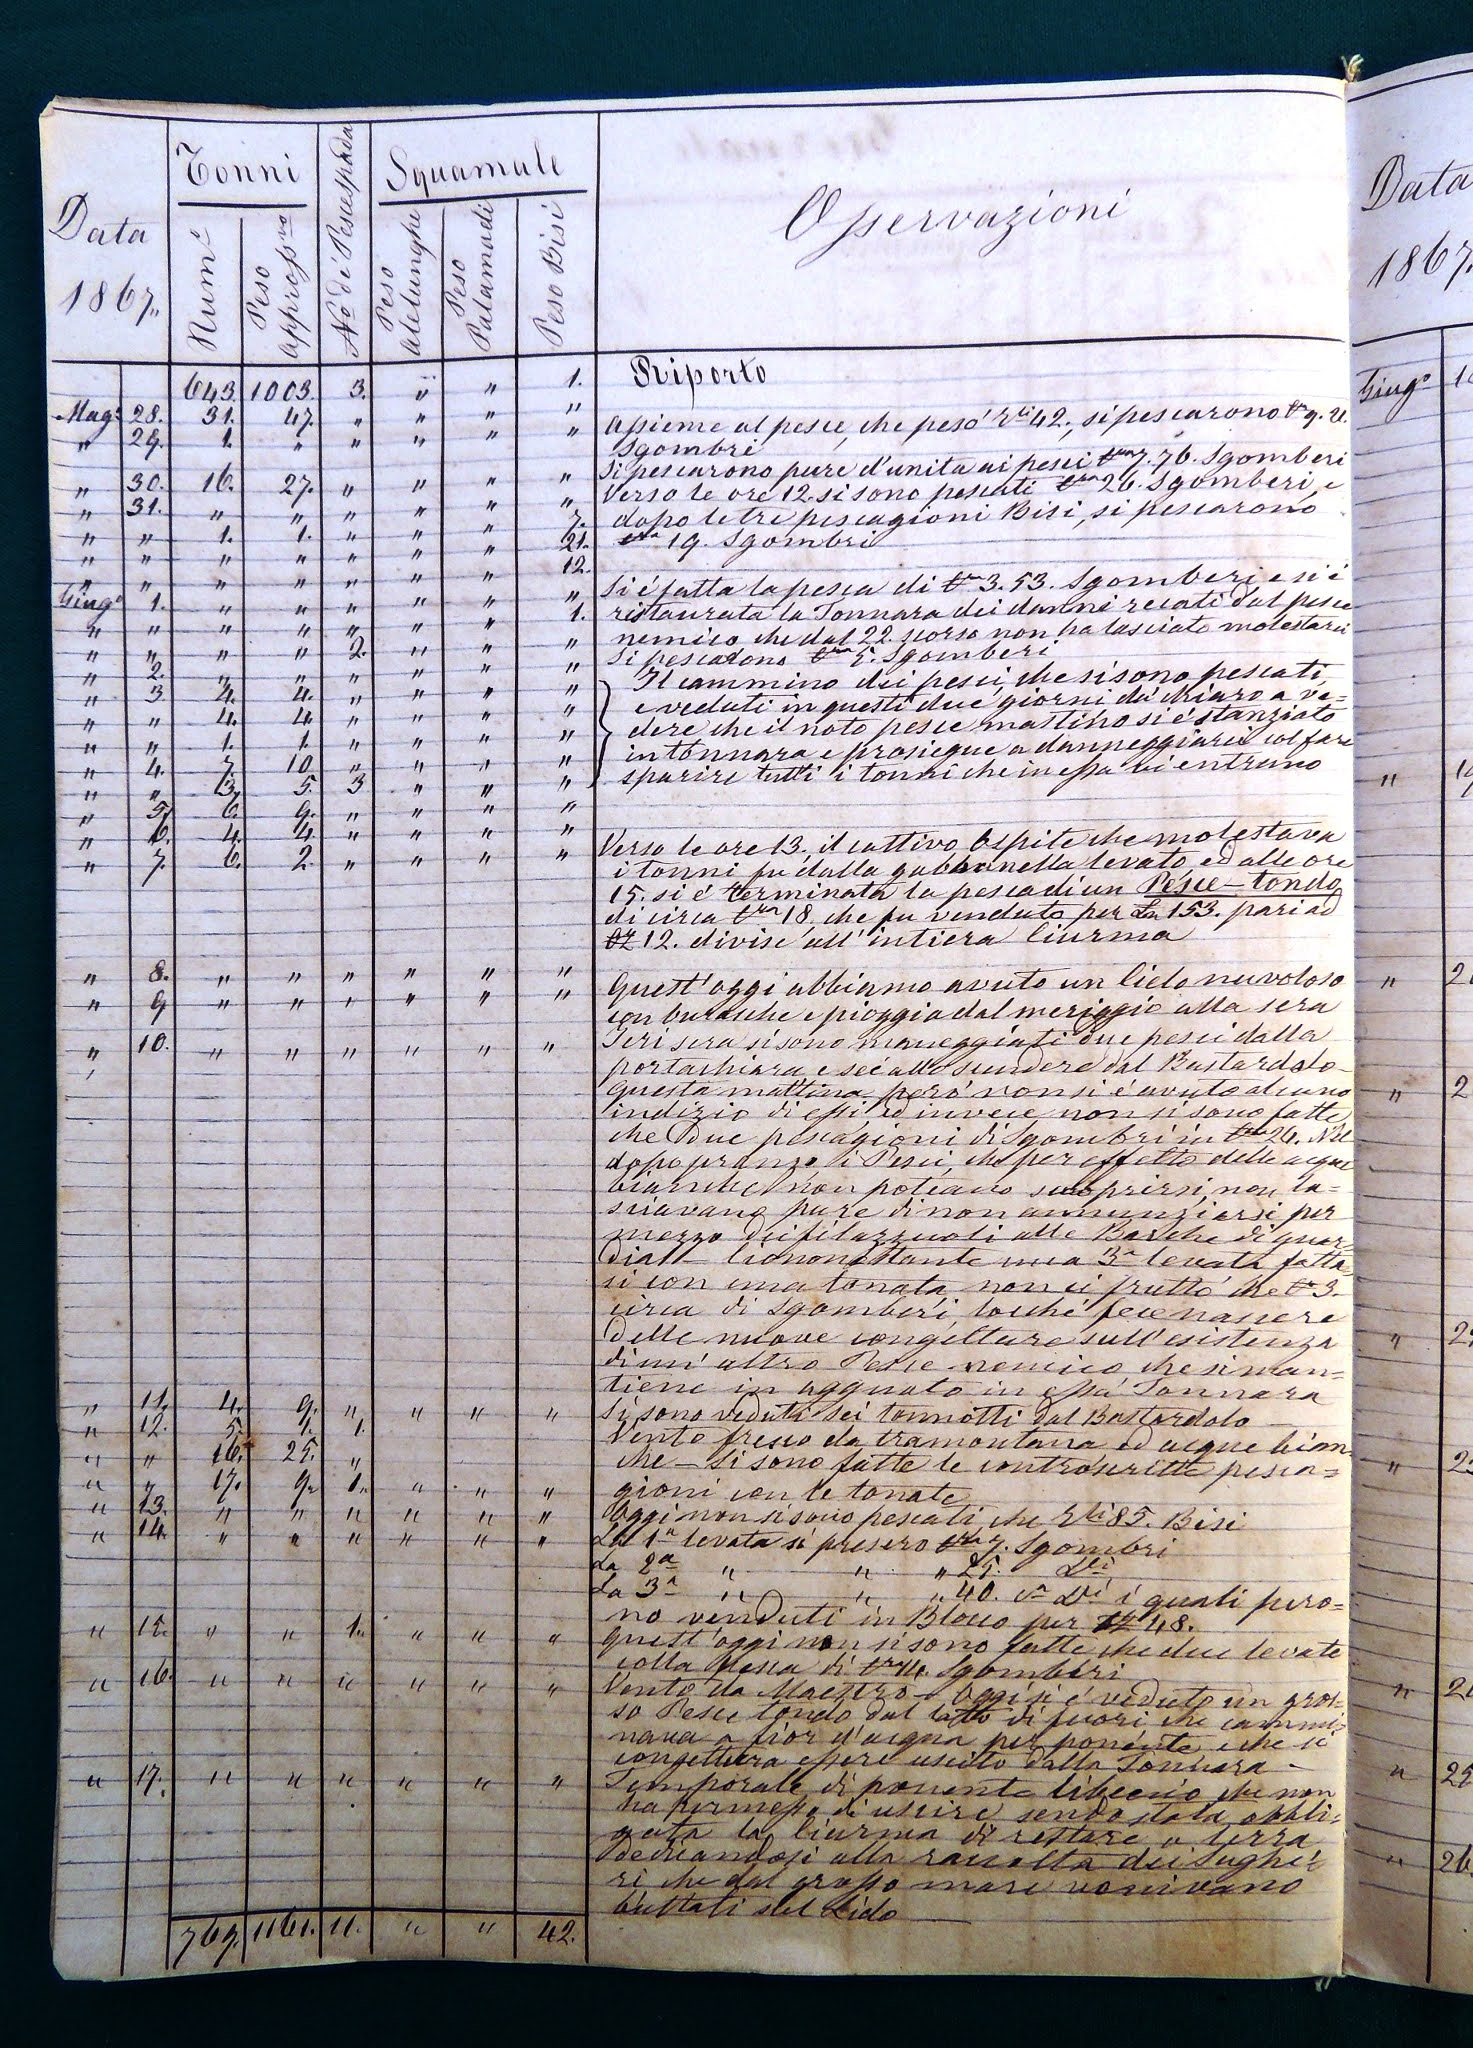 Data 1867,,
Tonni
Num.i
Peso appross.vo
No. di Pescespada
Squamule
Peso Alelunghe
Peso Palamudi
Peso Bisi
Osservazioni
643. 1003. 3. " " 1. Riporto
Mag.o 28. 31. 47. " " " "
" 29. 1. " " " " " Assieme al pesce, che pesò 42., si pescarono
Sgombri
" 30. 16. 27. " " " " Si pescarono pure d'unita ai pesci 7. 76. Sgomberi
" 31. " " " " " " Verso le ore 12. si sono pescati 26. Sgomberi, e
" " 1. 1. " " " 7. dopo le tre pescagioni Bisi, si pescarono
" " " " " " " 21. 19. Sgombri
" " " " " " " 12.
Giug.o 1. " " " " " " Si è fatta la pesca di 3. 53. Sgomberi e si è
" " " " " " " 1. ristaurata la Tonnara dei danni recati dal pesce
" " " " 2. " " " nemico che dal 22 scorso non ha lasciato molestarci
" 2. " " " " " " Si pescarono 5. Sgomberi
" 3 4. 4. " " " " Il cammino dei pesci, che si sono pescati,
" " 4. 4. " " " " e veduti in questi due giorni dà chiaro a ve=
" " 1. 1. " " " " dere che il noto pesce mastino si è stanziato
" 4. 7. 10. " " " " in tonnara e prosiegue a danneggiarci col fare
" " 13. 5. 3 " " " sparire tutti i tonni che in essa vi entremo
" 5. 6. 9. " " " "
" 6. 4. 4. " " " "
" 7. 6. 2. " " " " Verso le ore 13, il cattivo Ospite che molestava
i tonni fu dalla gabbanella levato, ed alle ore
15. si è terminata la pesca di un Pesce-tondo
di circa 18. che fu venduto per Ln 153. pari ad
12. divise all'intiera Ciurma
" 8. " " " " " " Quest'oggi abbiamo avuto un Cielo nuvoloso
" 9 " " " " " " con burasche e pioggia dal meriggio alla sera
" 10. " " " " " " Jeri sera si sono maneggiati due pesci dalla
portachiara e sei allo scendere dal Bastardolo-
Questa mattina però non si è avuto alcuno
indizio di essi, ed invece non si sono fatte
che due pescagioni di Sgombri in 26. Nel
dopo pranzo i Pesci, che per effetto delle acque
bianche non poteano scoprirsi, non la=
sciavano pure di non annunziarsi per
mezzo dei filazzuoli alle Barche di guar=
dia - Ciononostante una 3a levata fatta=
si con una tonata non ci fruttò che 3.
circa di Sgomberi, locchè fece nascere
delle nuove congetture sull'esistenza
di un'altro Pesce nemico che si man=
tiene in agguato in essa Tonnara
" 11. 4. 9. " " " " Si sono veduti sei tonnotti dal Bastardolo -
" 12. 5. 1. 1. Vento fresco da tramontana ed acque bian
" " 16. 25. " che - Si sono fatte le controscritte pesca=
" " 17. 9. 1. " " " gioni con le tonate
" 13. " " " " " " Oggi non si sono pescati che 85. Bisi
" 14. " " " " " " La 1a levata si presero 7. Sgombri
La 2a " " " 25. Di
La 3a " " " 40. Di i quali furo=
no venduti in Bloco per 48.
" 15. " " 1. " " " Quest'oggi non si sono fatte che due levate
colla pesca di 14. Sgomberi
" 16. " " " " " " Vento da Maestro - Oggi si è veduto un gros=
so Pesce tondo dal latto di fuori che cammi=
nava a fior d'acqua per ponente e che si
congettura essere uscito dalla Tonnara -
" 17. " " " " " " Temporale di ponente libeccio che non
ha permesso di uscire sendo stata obbli=
gata la Ciurma di restare a terra
dedicandosi alla raccolta dei Sughe=
ri che dal grosso mare venivano
buttati sul Lido
769. 1161. 11. " " 42.
Data
1867.
Giug.o
"
" 2
" 2
" 2
" 2
" 2
" 25
" 26